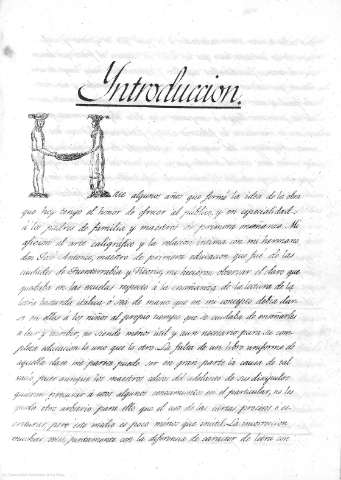 Introduccion.
Hace algunos años que formé la idea de la obra
que hoy tengo el honor de ofrecer al público, y en especialidad
á los padres de familia y maestros de primera enseñanza. Mi
aficion al arte caligráfico y la relacion íntima con mi hermano
don José Antonio, maestro de primera educacion que fué de las
ciudades de Fuenterrabia y Vitoria, me hicieron observar el claro que
quedaba en las escuelas respecto á la enseñanza de la lectura de la
letra bastarda itálica ó sea de mano que en mi concepto debia dar-
se en ellas á los niños al propio tiempo que se cuidaba de enseñarles
á leer y escribir, no siendo menos útil y aun necesario para su com-
pleta educacion lo uno que lo otro. La falta de un libro uniforme de
aquella clase de letra puede ser en gran parte la causa de tal
vacío, pues aunque los maestros celosos del adelanto de sus discípulos
quieran procurar á estos algunos conocimientos en el particular, no les
queda otro arbitrio para ello que el uso de las cartas, procesos ó es-
crituras; pero este medio es poco menos que inútil. La incorreccion
muchas veces, juntamente con la diferencia de caracter de letra con